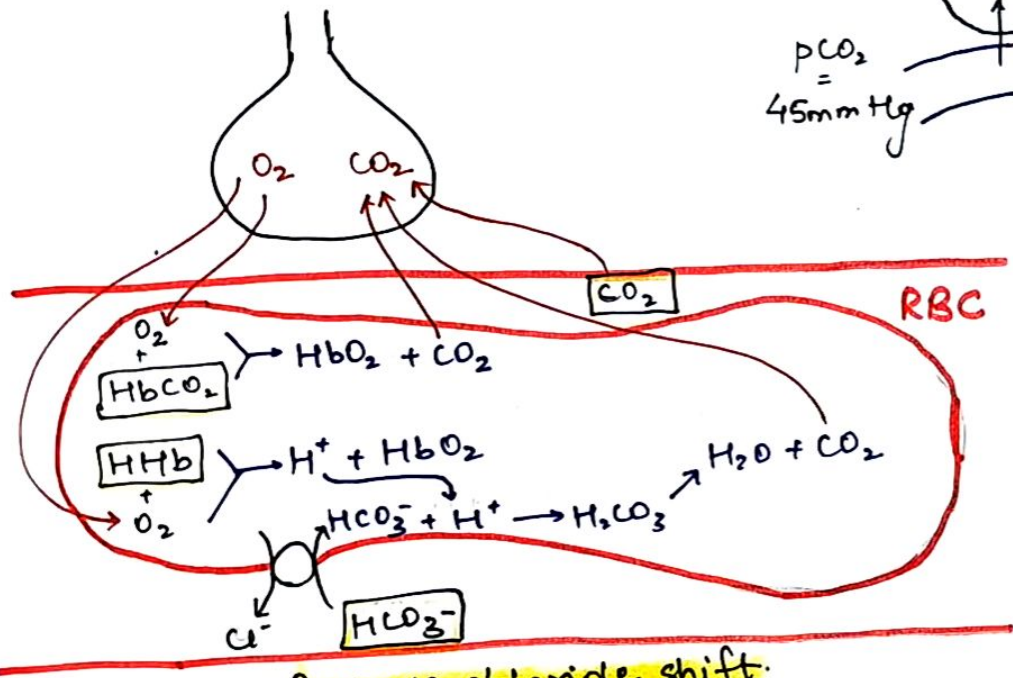 pCO₂
=
45mm Hg
O₂ CO₂
CO₂
RBC
O₂
+
HbCO₂
HbO₂ + CO₂
HHb
+
O₂
H⁺ + HbO₂
HCO₃⁻ + H⁺ → H₂CO₃
H₂O + CO₂
Cl⁻
HCO₃⁻
shift.